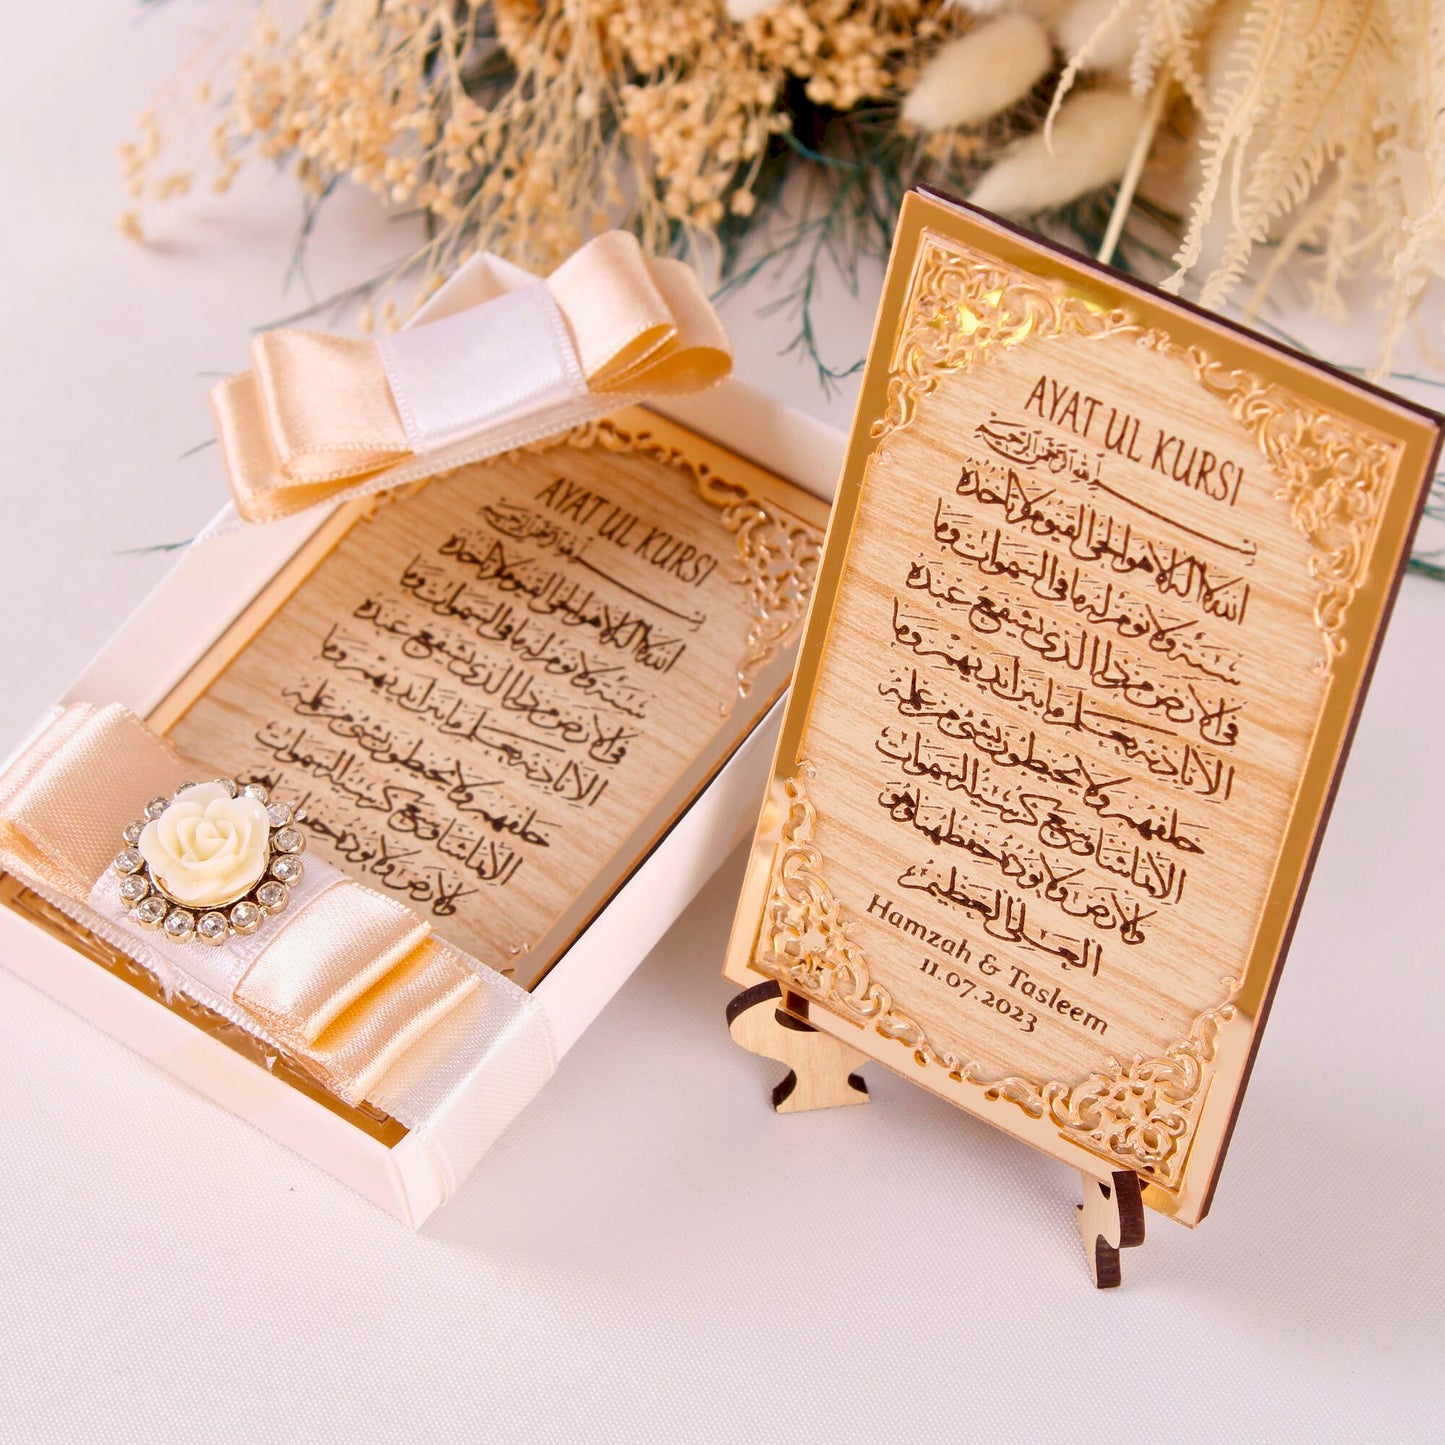 AYAT UL KURSI
بسم الله الرحمن الرحيم
الله لا اله الا هو الحي القيوم لا تأخذه
سنة ولا نوم له ما في السموات وما
في الارض من ذا الذي يشفع عنده
الا باذنه يعلم ما بين ايديهم وما
خلفهم ولا يحيطون بشئ من علمه
الا بما شاء وسع كرسيه السموات
والارض ولا يؤده حفظهما وهو
العلي العظيم
Hamzah & Tasleem
11.07.2023
AYAT UL KURSI
بسم الله الرحمن الرحيم
الله لا اله الا هو الحي القيوم لا تأخذه
سنة ولا نوم له ما في السموات وما
في الارض من ذا الذي يشفع عنده
الا باذنه يعلم ما بين ايديهم وما
خلفهم ولا يحيطون بشئ من علمه
الا بما شاء وسع كرسيه السموات
والارض ولا يؤده